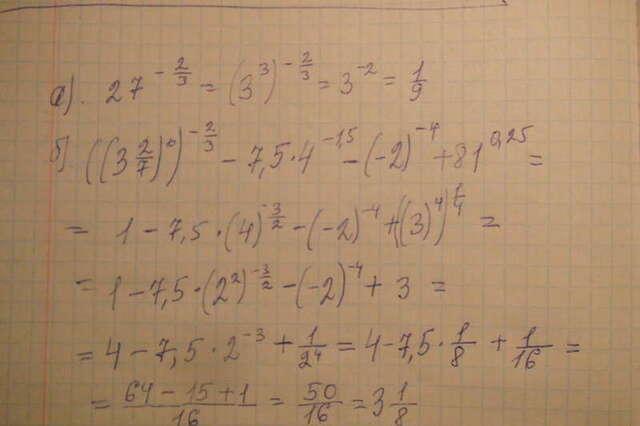 а). 27^{-\frac{2}{3}} = (3^3)^{-\frac{2}{3}} = 3^{-2} = \frac{1}{9}
б) ((3\frac{2}{7})^0)^{-\frac{2}{3}} - 7,5·4^{-1,5} - (-2)^{-4} + 81^{0,25} =
= 1 - 7,5·(4)^{-\frac{3}{2}} - (-2)^{-4} + ((3)^4)^{\frac{1}{4}} =
= 1 - 7,5·(2^2)^{-\frac{3}{2}} - (-2)^{-4} + 3 =
= 4 - 7,5·2^{-3} + \frac{1}{2^4} = 4 - 7,5·\frac{1}{8} + \frac{1}{16} =
= \frac{64 - 15 + 1}{16} = \frac{50}{16} = 3\frac{1}{8}